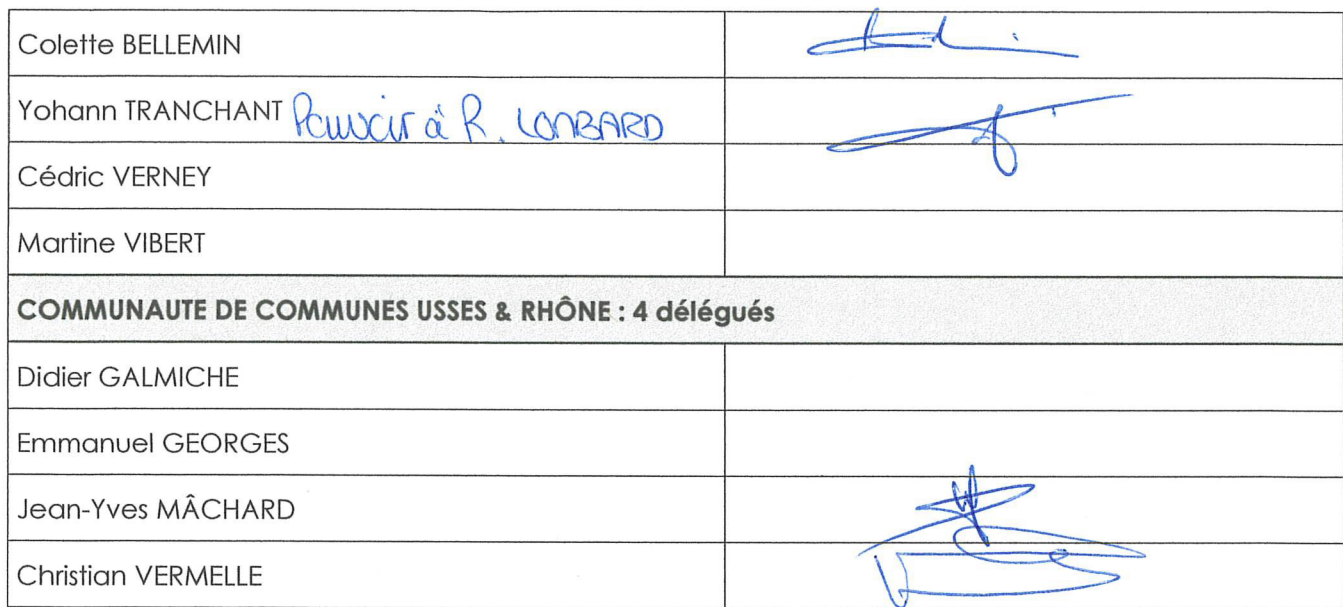 Colette BELLEMIN
Yohann TRANCHANT Pouvoir à R. LOMBARD
Cédric VERNEY
Martine VIBERT
COMMUNAUTE DE COMMUNES USSES & RHÔNE : 4 délégués
Didier GALMICHE
Emmanuel GEORGES
Jean-Yves MÂCHARD
Christian VERMELLE